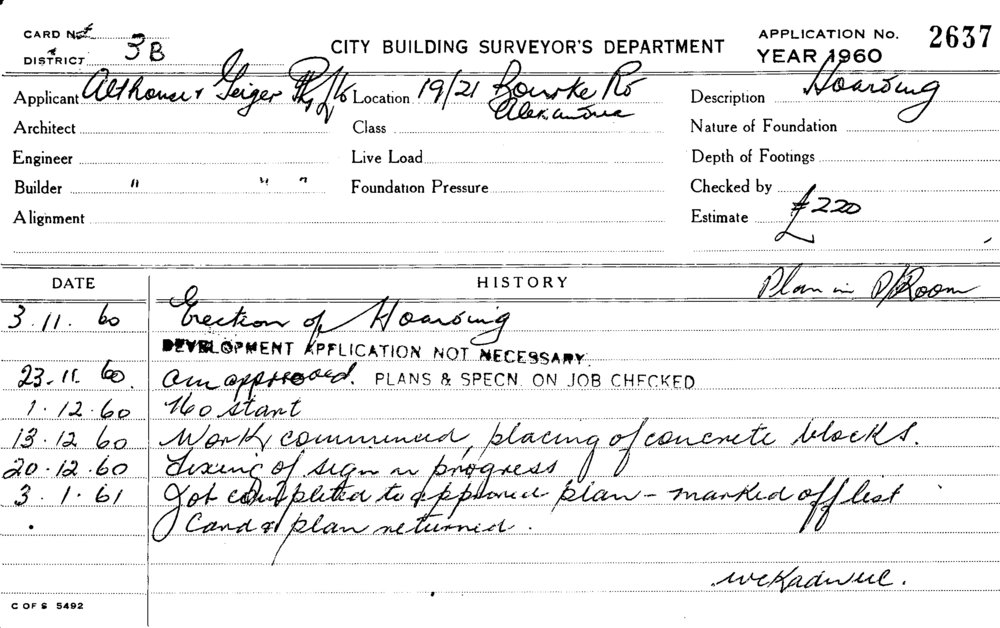 CARD No.
DISTRICT 3B
CITY BUILDING SURVEYOR'S DEPARTMENT
APPLICATION No. 2637
YEAR 1960
Applicant Althouse & Geiger Pty/Ltd Location 19/21 Bourke Rd Description Hoarding
Alexandria
Architect Class Nature of Foundation
Engineer Live Load Depth of Footings
Builder " " " Foundation Pressure Checked by
Alignment Estimate £220
DATE HISTORY Plan in P/Room
3.11.60 Erection of Hoarding
DEVELOPMENT APPLICATION NOT NECESSARY
23.11.60 approved. PLANS & SPECN. ON JOB CHECKED
1.12.60 No start
13.12.60 Work commenced, placing of concrete blocks.
20.12.60 Fixing of sign in progress
3.1.61 Job completed to approved plan - marked off list
Card & plan returned.
C OF S 5492